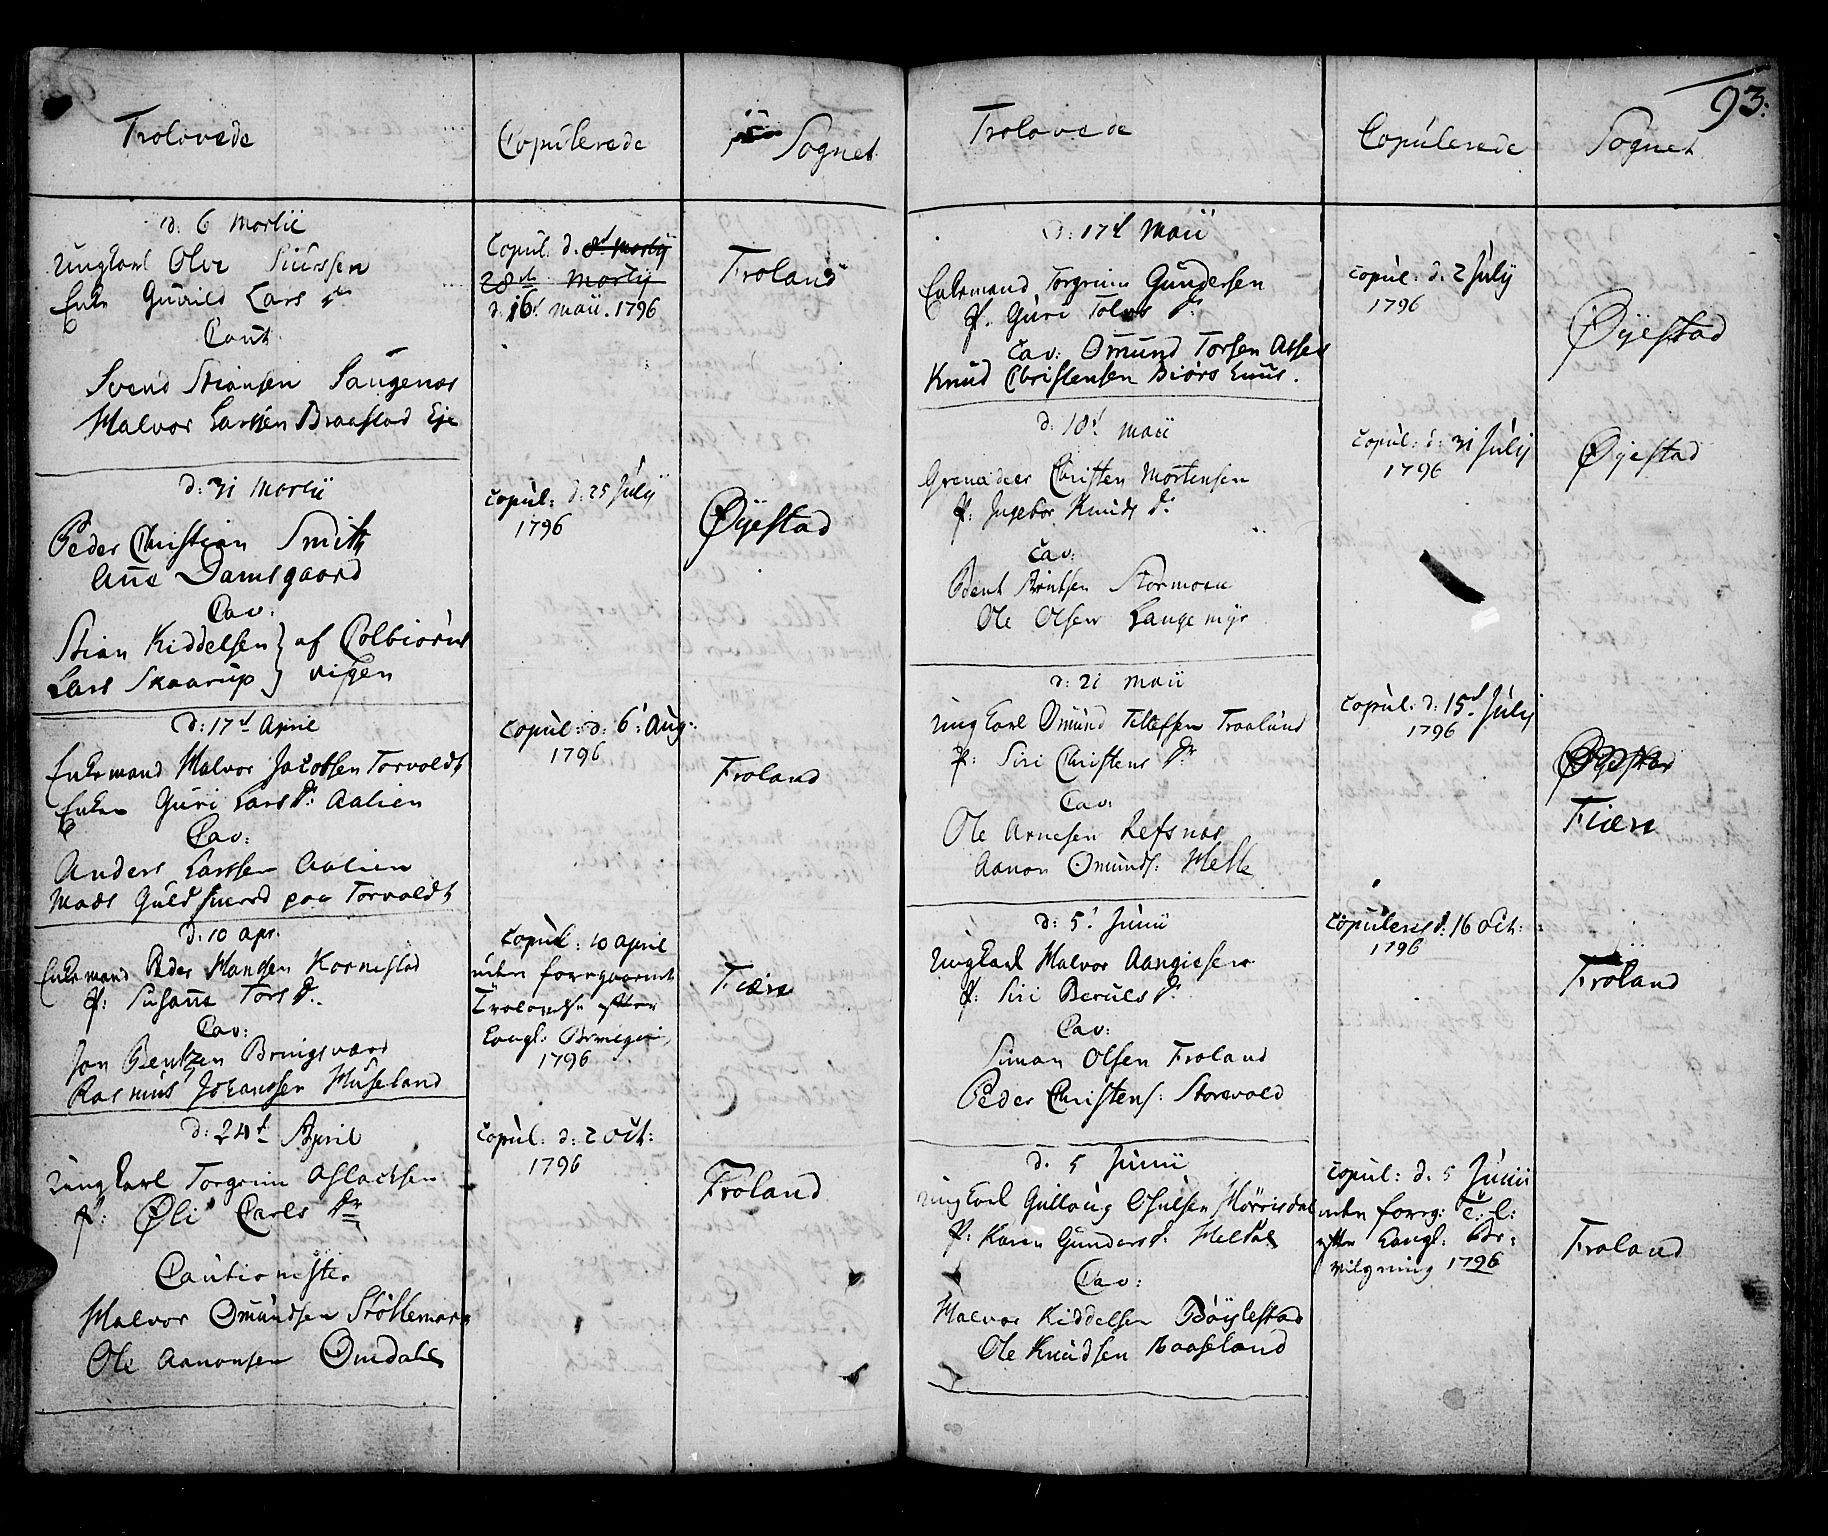 Trolovede
Copulerede
Sognet
d: 6 Martii
Ungkarl Olve Siurssen
Enke Gunild Lars dr
Caut.
Svend Stiansen Saugenæs
Halvor Larssen Braastad Eje
Copul. d. 8d Martij
28de Martij
d. 16d Maii. 1796
Froland
d: 31 Martii
Peder Christian Smith
Anna Damsgaard
Cav:
Stian Kiddelsen } af Colbiørns
Lars Skaarup } vigen
Copul: d: 25 July
1796
Øyestad
d: 17d April
Enkemand Halvor Jacobsen Torvoldt
Enken Guri Lars dr: Aalien
Cav:
Anders Larssen Aalien
Mads Guldsmed paa Torvoldt
Copul: d: 6: Aug:
1796
Froland
d: 10 apr.
Enkemand Peder Hanssen Kornestad
P: Susanna Tors dr.
Cav:
Jon Bentzen Bringsværd
Rasmus Johanssen Huseland
Copul: 10 April
uden foregaaende
Trolovelse efter
Kongl: Bevilgni
1796
Fiære
d: 24d April
Ungkarl Torgrim Aslachsen
P: Øli Carls dr
Cautionister
Halvor Omundsen Støllemare
Ole Aanonsen Omdahl
Copul: d: 2 Oct:
1796
Froland
93:
Trolovede
Copulerede
Sognet
d: 17d Maii
Enkemand Torgrim Gundersen
P. Guri Tolvs dr
Cav: Omund Torsen Assev
Knud Christensen Biørs
Copul: d: 2 July
1796
Øyestad
d: 18d Maii
Grenadeer Christen Mortensen
P: Ingebor Knuds dr
Cav:
Bent Bentsen Stormoen
Ole Olsen Langemyr
Copul: d: 31 July
1796
Øyestad
d: 21 Maii
Ungkarl Omund Tellefsen Traalund
P: Siri Christens dr
Cav:
Ole Arnesen Refsnæs
Aanon Omunds: Helle
Copul: d: 15d July
1796
Øyestad
Fiære
d: 5d Junii
Ungkarl Halvor Aangiesen
P: Siri Beruls dr
Cav:
Simon Olsen Froland
Peder Christens: Storevold
Copuleres d: 16 Oct:
1796
Froland
d. 5 Junii
Ungkarl Gulloug Osulsen Hørrisdal
P: Karen Gunders dr. Heldal
Cav:
Halvor Kiddelsen Bøylestad
Ole Knudsen Baaseland
Copul: d. 5 Junii
uden foreg: T: l:
efter Kongl: Be-
vilgning 1796
Froland